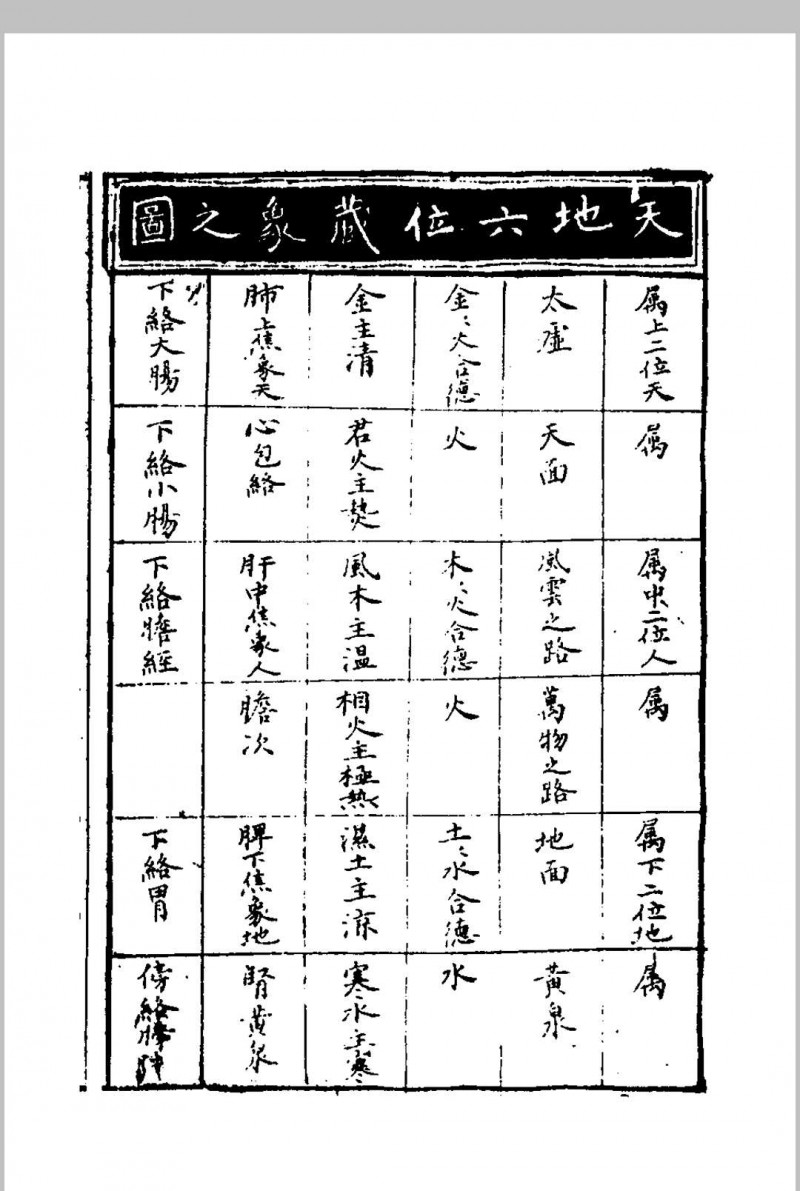 天地六位藏象之圖
属上二位天
太虛
金〻火合德
金主清
肺上焦象天
下絡大腸
属
天面
火
君火主熱
心包絡
下絡小腸
属中二位人
風雲之路
木〻火合德
風木主温
肝中焦象人
下絡膽經
属
萬物之路
火
相火主極熱
膽次
属下二位地
地面
土〻水合德
濕土主涼
脾下焦象地
下絡胃
属
黃泉
水
寒水主寒
腎黄泉
傍絡膀胱